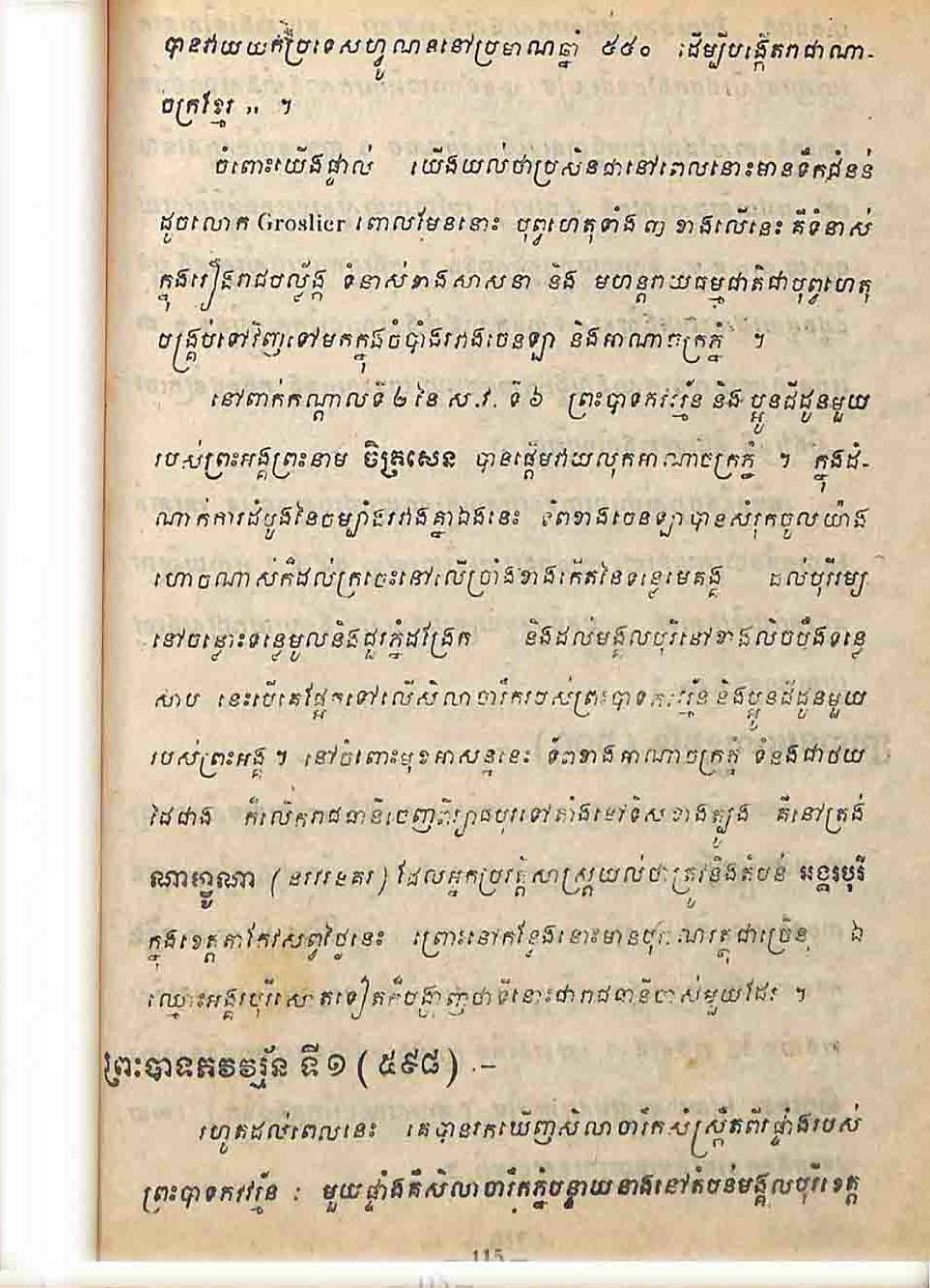 បានវាយយកប្រទេសហ្វូណននៅប្រមាណឆ្នាំ ៥៤០ ដើម្បីបង្កើតរាជាណា-
ចក្រខ្មែរ ,, ។
ចំពោះយើងផ្ទាល់ យើងយល់ថាប្រសិនជានៅពេលនោះមានទឹកជំនន់
ដូចលោក Groslier ពោលមែននោះ បុព្វហេតុទាំង ៣ ខាងលើនេះ គឺទំនាស់
ក្នុងរឿងរាជបល្ល័ង្ក ទំនាស់ខាងសាសនា និង មហន្តរាយធម្មជាតិជាបុព្វហេតុ
បង្គ្រប់ទៅវិញទៅមកក្នុងចំបាំងរវាងចេនឡា និងអាណាចក្រភ្នំ ។
នៅពាក់កណ្តាលទី ២ នៃ ស.វ. ទី ៦ ព្រះបាទភវវរ្ម័ន និងប្អូនជីដូនមួយ
របស់ព្រះអង្គព្រះនាម ចិត្រសេន បានផ្តើមវាយលុកអាណាចក្រភ្នំ ។ ក្នុងដំ-
ណាក់ការដំបូងនៃចម្បាំងរវាងគ្នាឯងនេះ ទ័ពខាងចេនឡាបានសំរុកចូលយ៉ាង
ហោចណាស់ក៏ដល់ក្រចេះនៅលើច្រាំងខាងកើតនៃទន្លេមេគង្គ ដល់បុរីរម្យ
នៅចន្លោះទន្លេមូលនិងជួរភ្នំដងរែក និងដល់មង្គលបុរីនៅខាងលិចបឹងទន្លេ
សាប នេះបើគេផ្អែកទៅលើសិលាចារឹករបស់ព្រះបាទភវវរ្ម័ន និងប្អូនជីដូនមួយ
របស់ព្រះអង្គ ។ នៅចំពោះមុខអាសន្ននេះ ទ័ពខាងអាណាចក្រភ្នំ ទំនងជាថយ
ដៃជាង ក៏លើករាជធានីចេញពីវ្យាធបុរៈទៅតាំងនៅទិសខាងត្បូង គឺនៅត្រង់
ណាហ្វូណា (នរវរនគរ) ដែលអ្នកប្រវត្តិសាស្ត្រយល់ថាត្រូវនឹងតំបន់ អង្គរបុរី
ក្នុងខេត្តតាកែវសព្វថ្ងៃនេះ ព្រោះនៅកន្លែងនោះមានបុរាណវត្ថុជាច្រើន ឯ
ឈ្មោះអង្គរបុរីសោតទៀតក៏បង្ហាញថាទីនោះជារាជធានីចាស់មួយដែរ ។
ព្រះបាទភវវរ្ម័ន ទី ១ ( ៥៩៨ ) .–
រហូតដល់ពេលនេះ គេបានរកឃើញសិលាចារឹកសំស្ក្រឹតពីរផ្ទាំងរបស់
ព្រះបាទភវវរ្ម័ន : មួយផ្ទាំងគឺសិលាចារឹកភ្នំបន្ទាយនាងនៅតំបន់មង្គលបុរីខេត្ត
— 115 —